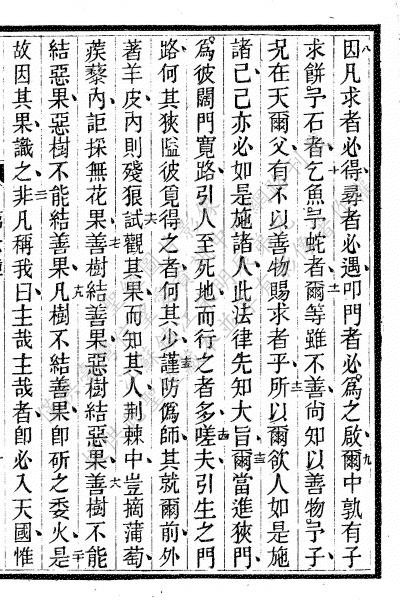 八因凡求者必得尋者必遇叩門者必爲之啟九爾中孰有子
求餅十予石者乞魚予蛇者十一爾等雖不善尚知以善物予子
况在天爾父有不以善物賜求者乎十二所以爾欲人如是施
諸己己亦必如是施諸人此法律先知大旨十三爾當進狹門
爲彼闊門寬路引人至死地而行之者多十四嗟夫引生之門
路何其狹隘彼覓得之者何其少十五謹防僞師其就爾前外
著羊皮內則殘狼十六試觀其果而知其人荆棘中豈摘蒲萄
蒺藜內詎採無花果十七善樹結善果惡樹結惡果十八善樹不能
結惡果惡樹不能結善果十九凡樹不結善果卽斫之委火二十是
故因其果識之二一非凡稱我曰主哉主哉者卽必入天國惟